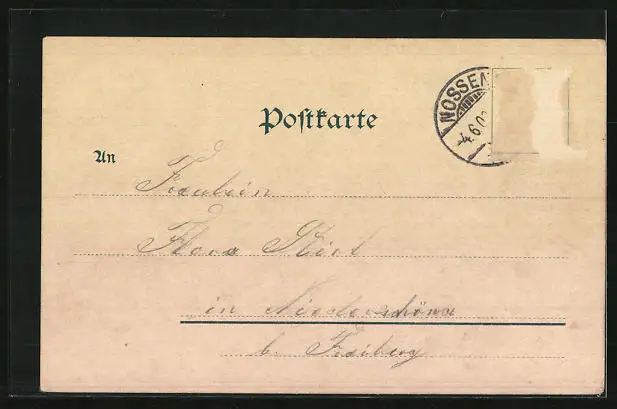 Postkarte
NOSSEN
-4.6.0
An
Fräulein
Flora
in Niederschöna
b. Freiberg